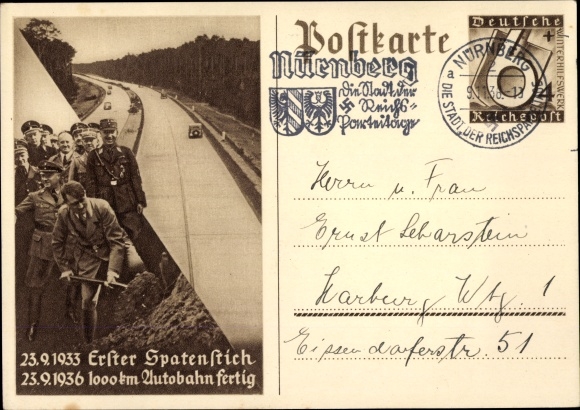 Postkarte
Deutsche
Winterhilfswerk
6+4
Reichspost
Nürnberg
die Stadt der
Reichs-
Parteitage
NÜRNBERG
2
a
9.11.36.-13
DIE STADT DER REICHSPARTEITAGE
Herrn u. Frau
Ernst Scharstein
Harburg Wbg. 1
Eissendorferstr. 51
23.9.1933 Erster Spatenstich
23.9.1936 1000 km Autobahn fertig